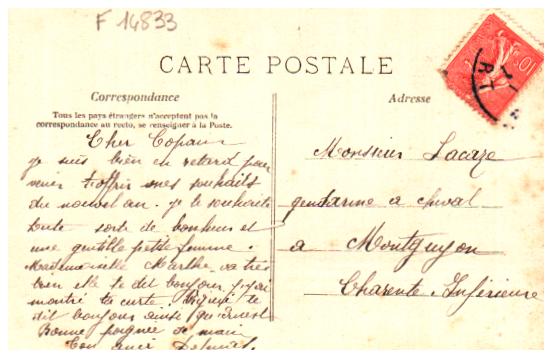 F 14833
CARTE POSTALE
Correspondance
Adresse
Tous les pays étrangers n'acceptent pas la
correspondance au recto, se renseigner à la Poste.
Cher Copain
je suis bien en retard pour
venir t'offrir mes souhaits
du nouvel an. je te souhaite
toute sorte de bonheur et
une gentille petite femme.
Mademoiselle Marthe va très
bien elle te dit bonjour, j'y ai
montré ta carte. te
dit bonjour ainsi qu'Ernest
Bonne poignée de main
Ton ami
Monsieur Lacaze
gendarme a cheval
a Montguyon
Charente. Inférieure